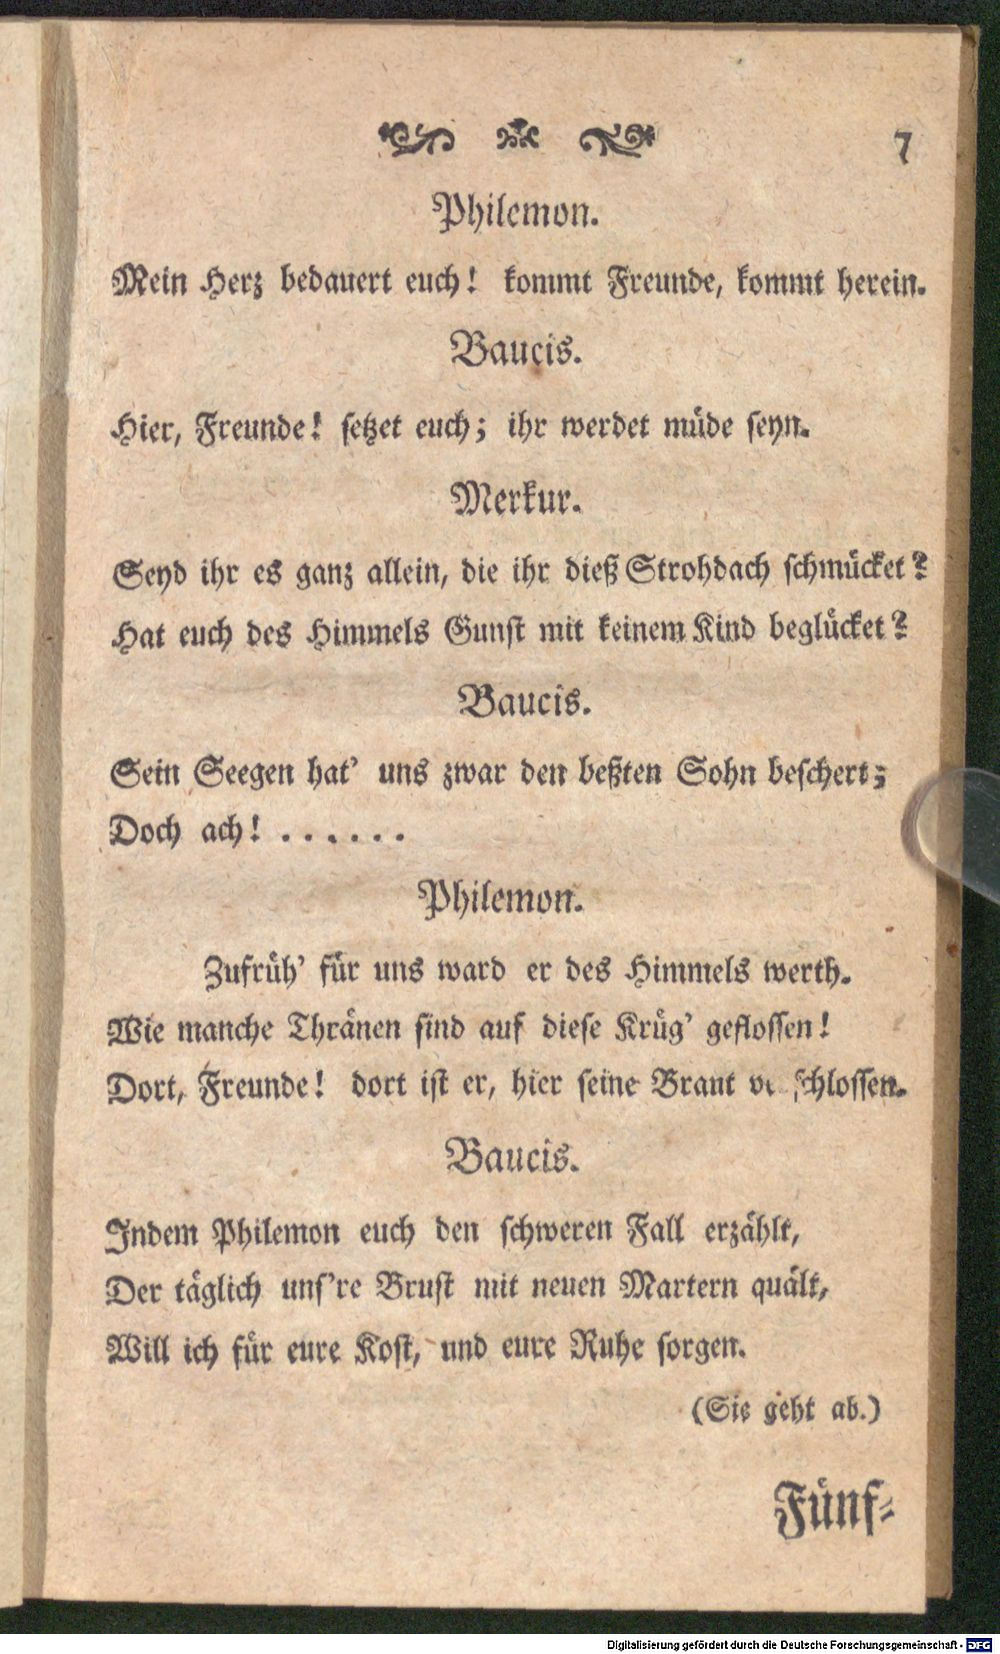 7
Philemon.
Mein Herz bedauert euch! kommt Freunde, kommt herein.
Baucis.
Hier, Freunde! setzet euch; ihr werdet müde seyn.
Merkur.
Seyd ihr es ganz allein, die ihr dieß Strohdach schmücket?
Hat euch des Himmels Gunst mit keinem Kind beglücket?
Baucis.
Sein Seegen hat' uns zwar den beßten Sohn beschert;
Doch ach! . . . . . .
Philemon.
Zufrüh' für uns ward er des Himmels werth.
Wie manche Thränen sind auf diese Krüg' geflossen!
Dort, Freunde! dort ist er, hier seine Braut
Baucis.
Indem Philemon euch den schweren Fall erzählt,
Der täglich uns're Brust mit neuen Martern quält,
Will ich für eure Kost, und eure Ruhe sorgen.
(Sie geht ab.)
Fünf-
Digitalisierung gefördert durch die Deutsche Forschungsgemeinschaft - DFG